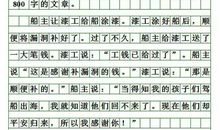 800 字的文章。
船主让漆工给船涂漆。漆工涂好船后，顺
便将漏洞补好了。过了不久，船主给漆工送了
一大笔钱。漆工说：“工钱已给过了”。船主
说：“这是感谢补漏洞的钱。”漆工说：“那是
顺便补的。”船主说：“当得知我的孩子们驾
船出海，我就知道他们回不来了。现在他们却
平安归来，所以我感谢你！”